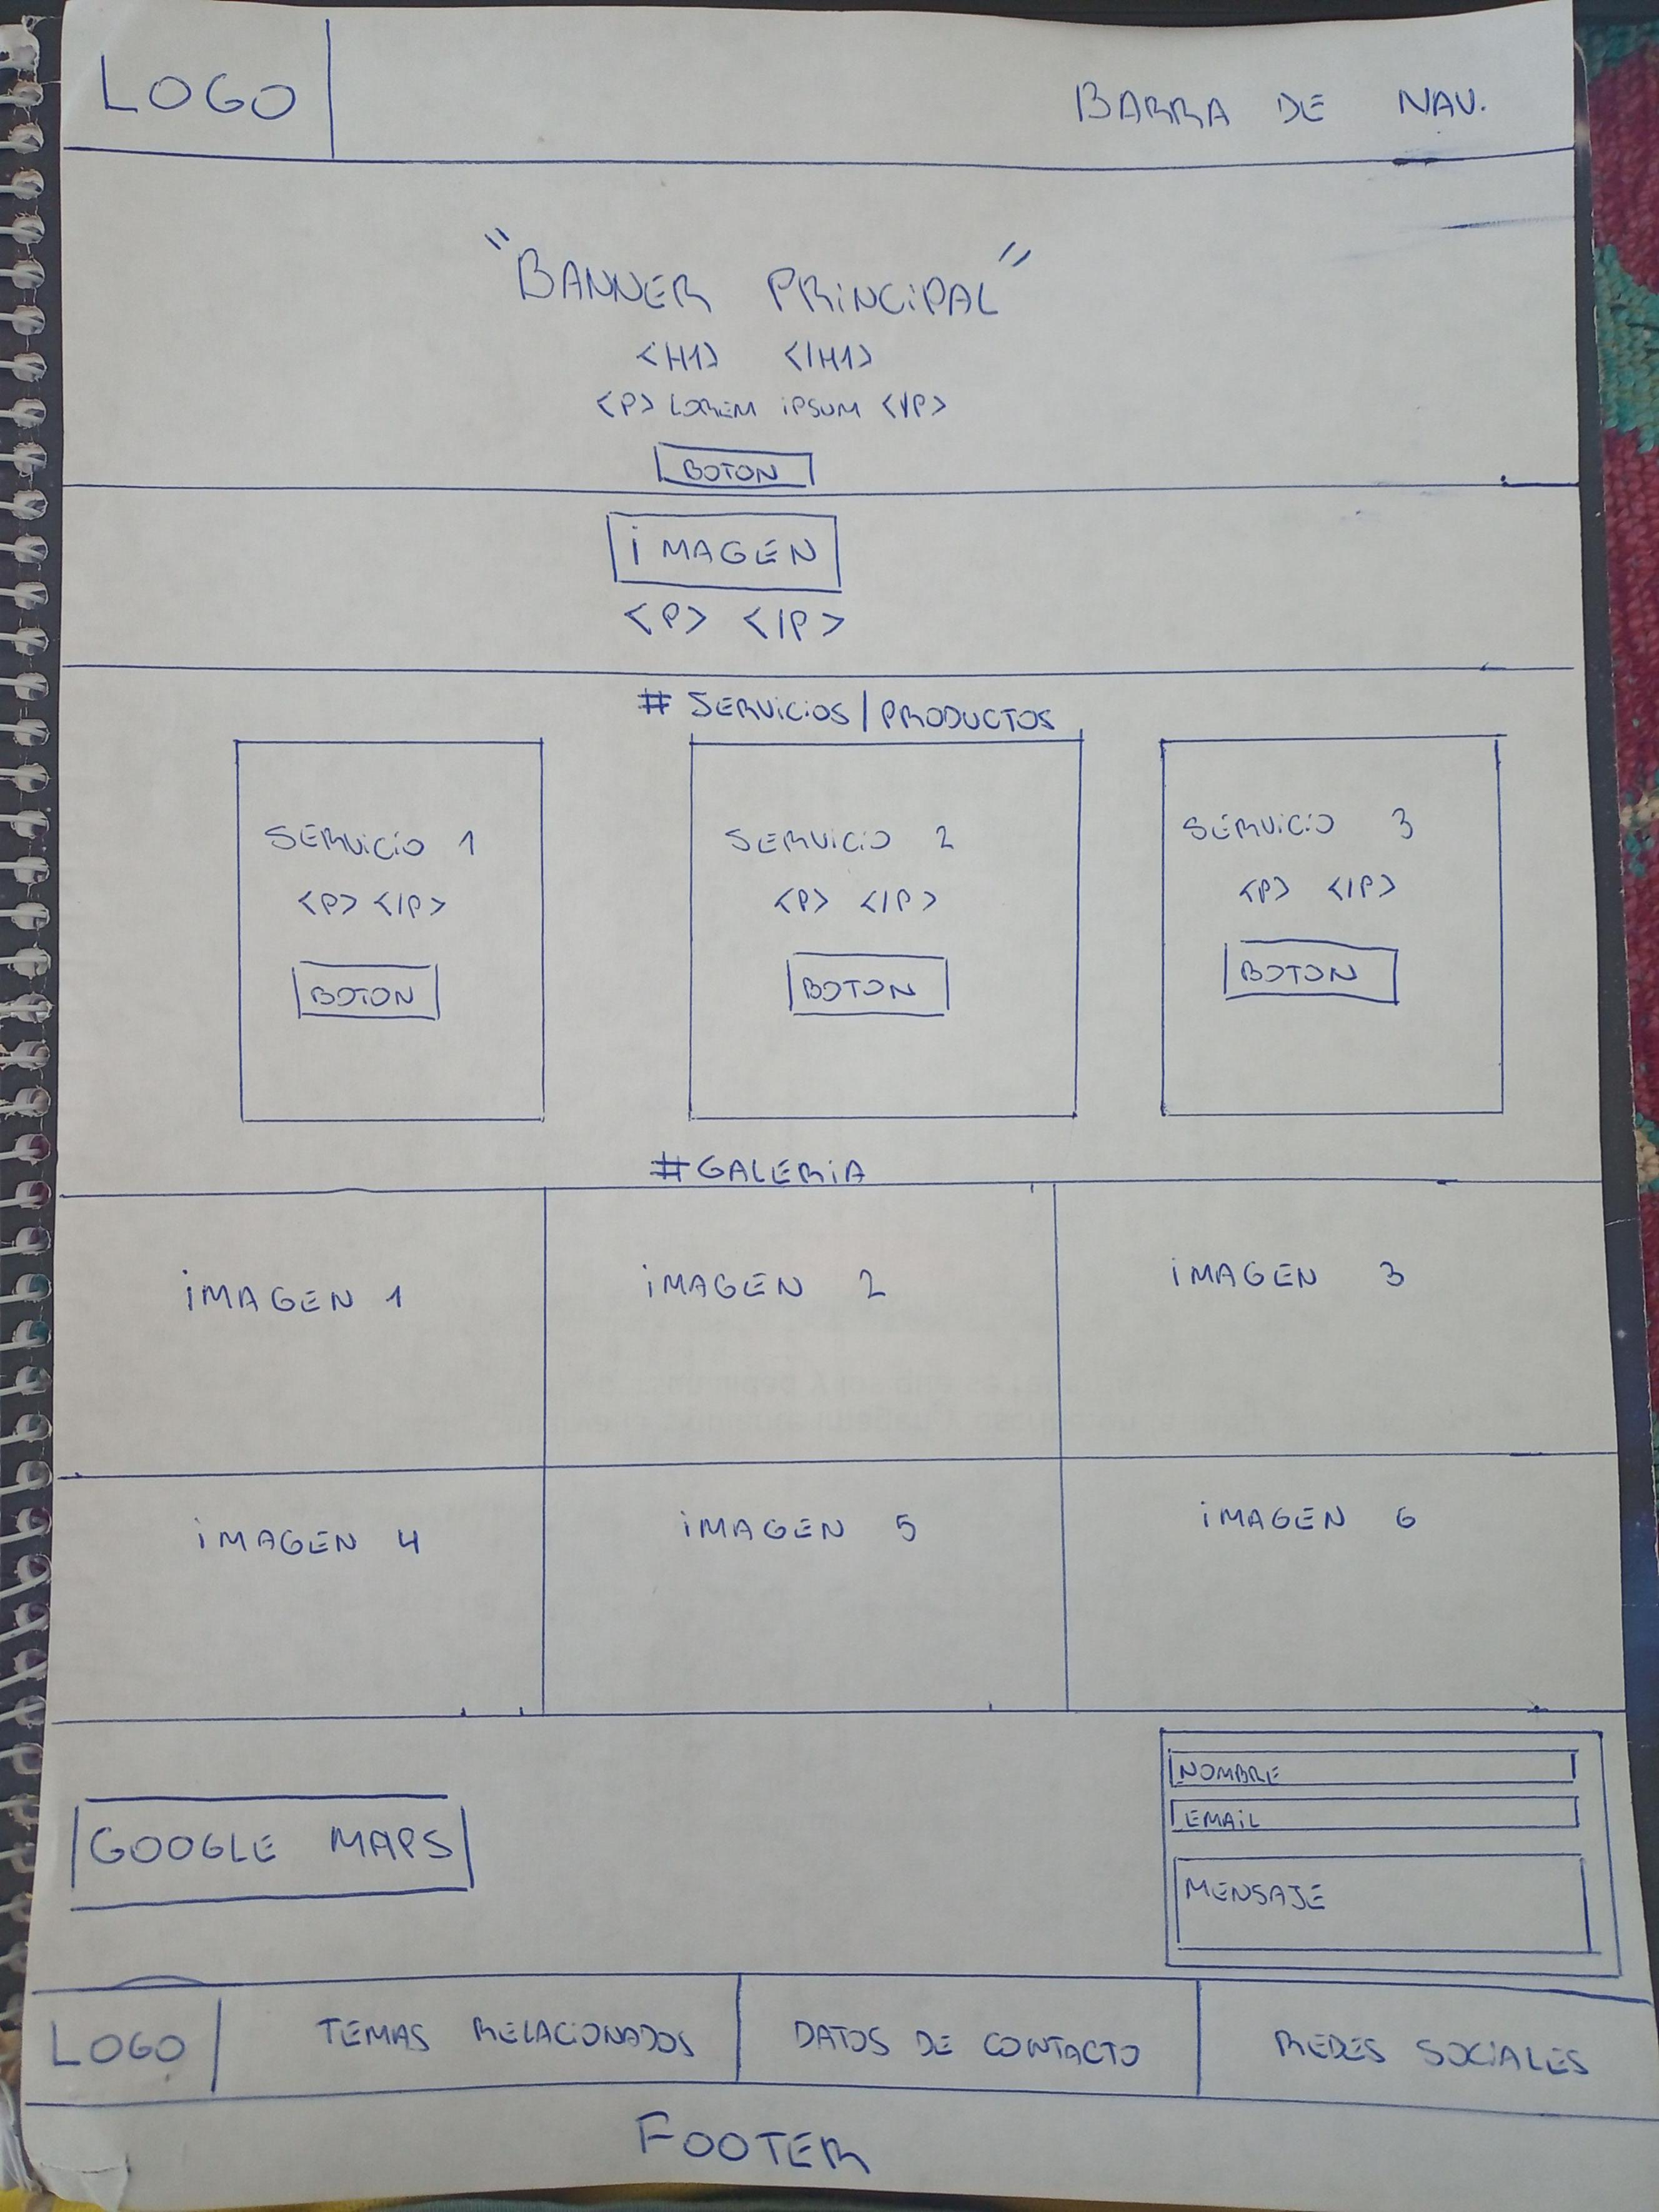 LOGO
BARRA DE NAV.
"BANNER PRINCIPAL"
<H1> </H1>
<P> LOREM IPSUM </P>
BOTON
iMAGEN
<P> </P>
# SERViCiOS/PRODUCTOS
SERViCiO 1
<P> </P>
BOTON
SERViCiO 2
<P> </P>
BOTON
SERViCiO 3
<P> </P>
BOTON
#GALERiA
iMAGEN 1
iMAGEN 2
iMAGEN 3
iMAGEN 4
iMAGEN 5
iMAGEN 6
GOOGLE MAPS
NOMBRE
EMAiL
MENSAJE
LOGO
TEMAS RELACiONADOS
DATOS DE CONTACTO
REDES SOCiALES
FOOTER